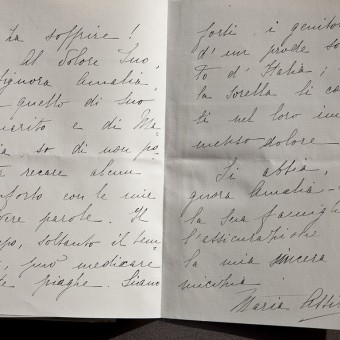 ta soffrire!
Al dolore Suo,
signora Amalia,
quello di Suo
marito e di Ma
ia so di non po
recare alcun
nforto con le mie
vere parole. Il
mpo, soltanto il tem
può medicare
te piaghe. Siano
forti i genitor
d'un prode so
to d'Italia;
la sorella li co
ti nel loro im
menso dolore
Si abbia,
gnora Amalia
la Sua famigl
l'assicurazione
la mia sincera
micizia.
Maria